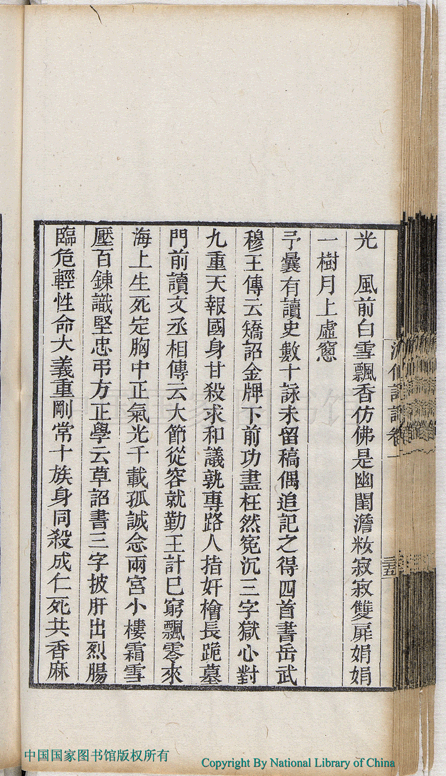 光　風前白雪飄香仿佛是幽閨澹妝寂寂雙扉娟娟
一樹月上虛窻
予曩有讀史數十詠未留稿偶追記之得四首書岳武
穆王傳云矯詔金牌下前功盡枉然寃沉三字獄心對
九重天報國身甘殺求和議就專路人揩奸檜長跪墓
門前讀文丞相傳云大節從容就勤王計已窮飄零來
海上生死定胸中正氣光千載孤誠念兩宮小樓霜雪
壓百鍊識堅忠弔方正學云草詔書三字披肝出烈腸
臨危輕性命大義重剛常十族身同殺成仁死共香麻
詞話卷一
三五
中国国家图书馆版权所有
Copyright By National Library of China